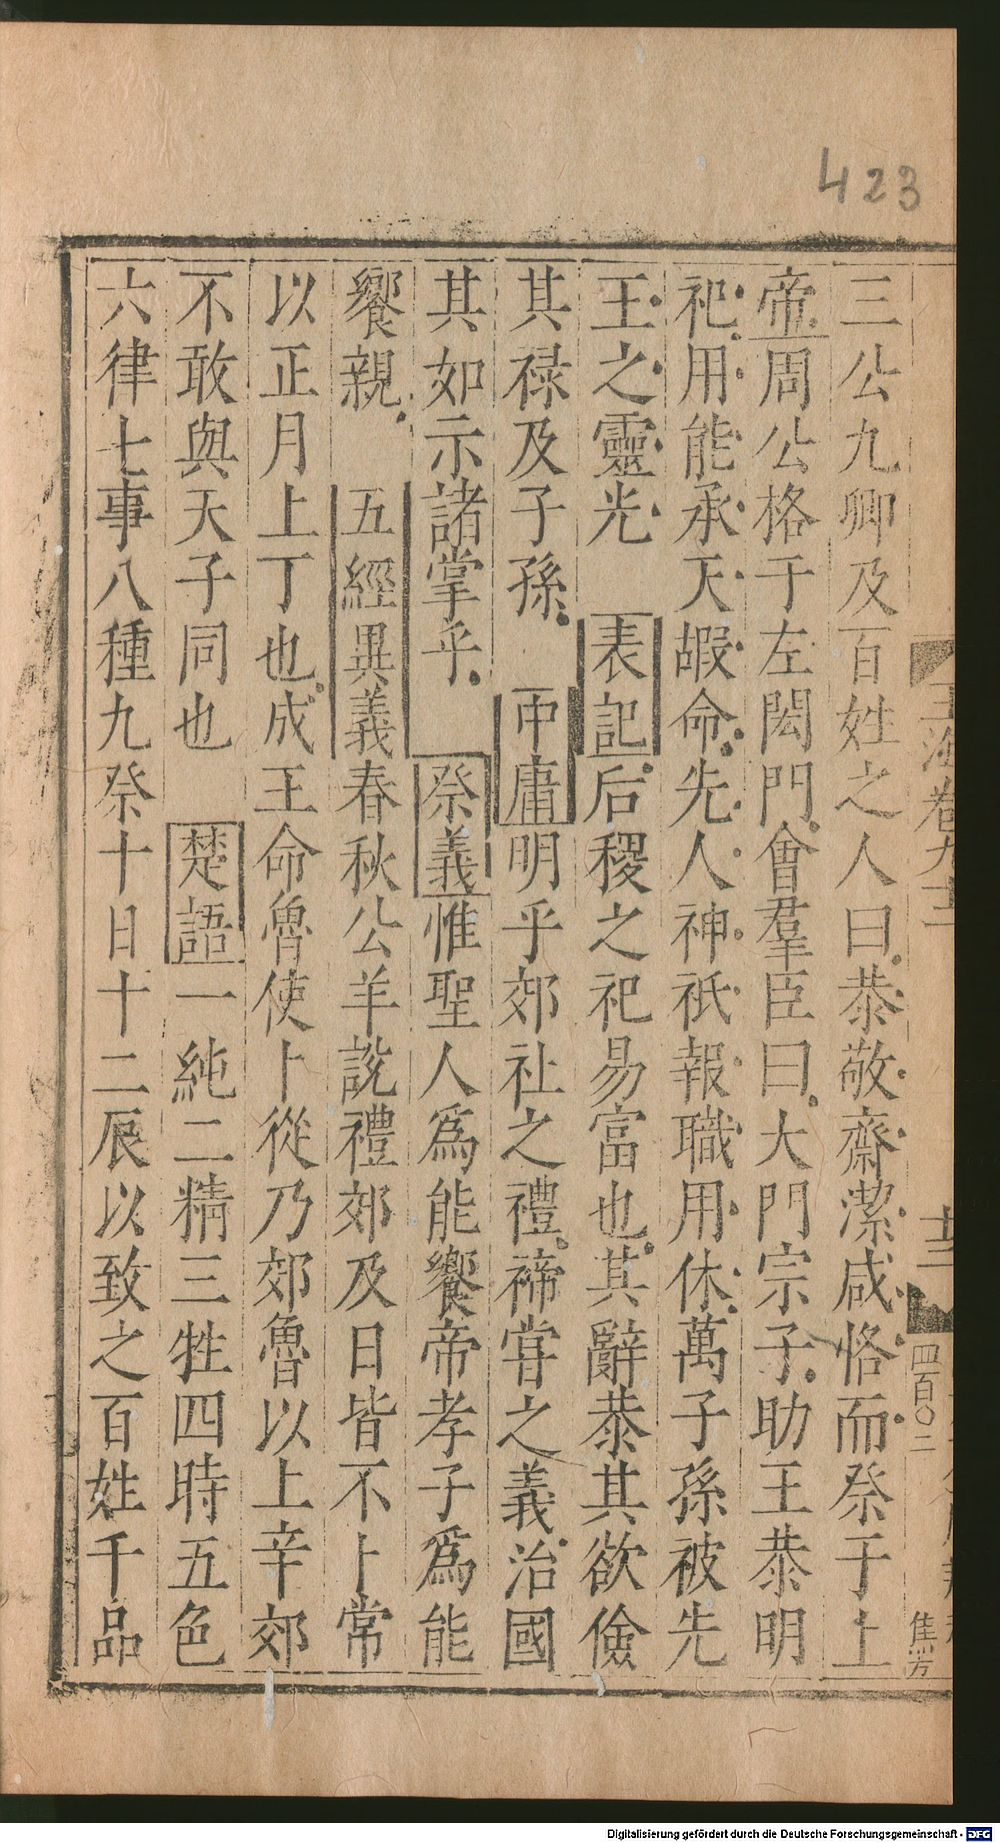 423
三公九卿及百姓之人曰恭敬齋潔咸恪而祭于上
帝周公格于左閎門會羣臣曰大門宗子助王恭明
祀用能承天嘏命先人神祇報職用休萬子孫被先
王之靈光 表記后稷之祀易富也其辭恭其欲儉
其祿及子孫 中庸明乎郊社之禮禘嘗之義治國
其如示諸掌乎 祭義惟聖人爲能饗帝孝子爲能
饗親 五經異義春秋公羊說禮郊及日皆不卜常
以正月上丁也成王命魯使卜從乃郊魯以上辛郊
不敢與天子同也 楚語一純二精三牲四時五色
六律七事八種九祭十日十二辰以致之百姓千品
玉海卷九十
四百〇二
焦芳
Digitalisierung gefördert durch die Deutsche Forschungsgemeinschaft - DFG